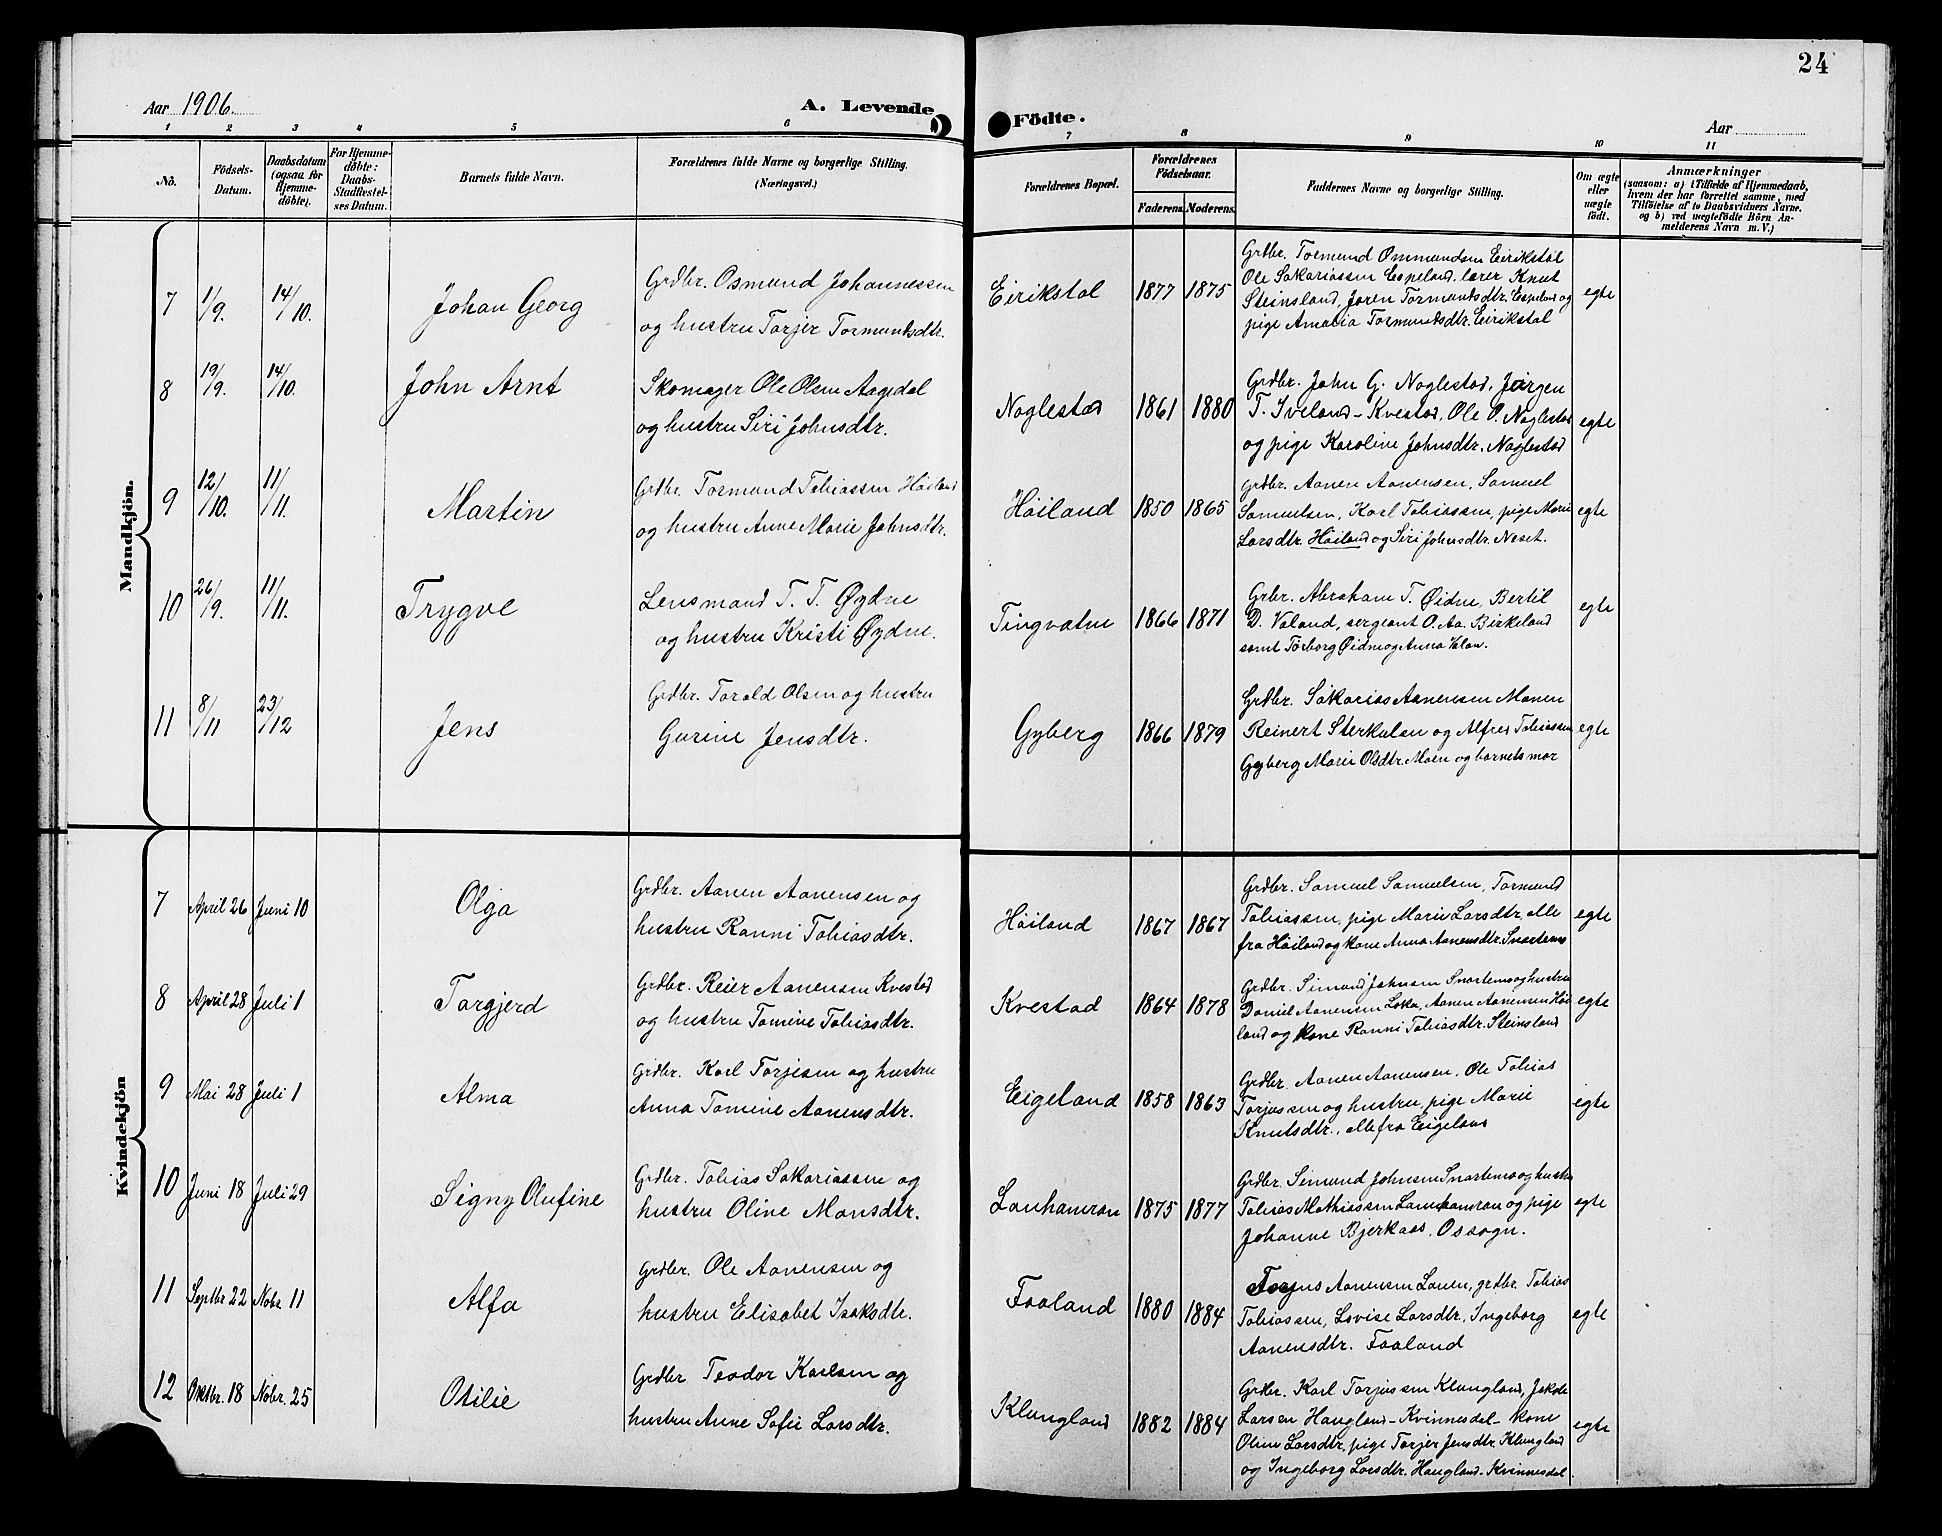 24
Aar 1906.
A. Levende Födte.
Aar
1 2 3 4 5 6 7 8 9 10 11
No.
Födsels-Datum.
Daabsdatum (ogsaa for Hjemme-döbte).
For Hjemme-döbte: Daabs-Stadfæstel-ses Datum.
Barnets fulde Navn.
Forældrenes fulde Navne og borgerlige Stilling.
(Næringsvei.)
Forældrenes Bopæl.
Forældrenes Födselsaar.
Faderens. Moderens.
Faddernes Navne og borgerlige Stilling.
Om ægte eller uægte födt.
Anmærkninger
(saasom: a) i Tilfælde af Hjemmedaab,
hvem der har forrettet samme, med
Tilföielse af to Daabsvidners Navne.
og b) ved uægtefödte Börn An-
melderens Navn m. V.)
Mandkjön.
7 1/9. 14/10. Johan Georg
Grdbr. Osmund Johannessen
og hustru Torjer Tormundsdtr.
Eirikstøl 1877 1875
Grdbr. Tormund Ommundsen Eirikstøl
Ole Sakariassen Espeland, lærer Knut
Steinsland, Joren Tormundsdtr. Espeland og
pige Amalia Tormundsdtr. Eirikstøl
egte
8 19/9. 14/10. John Arnt
Skomager Ole Olsen Aagedal
og hustru Siri Johnsdtr.
Noglestad 1861 1880
Grdbr. John G. Noglestad, Jørgen
T. Iveland-Kvestad, Ole O. Noglestad
og pige Karoline Johnsdtr. Noglestad
egte
9 12/10. 11/11. Martin
Grdbr. Tormund Tobiassen Höiland
og hustru Anne Marie Johnsdtr.
Höiland 1850 1865
Grdbr. Aanen Aanensen, Samuel
Samuelsen, Karl Tobiassen, pige Marie
Larsdtr. Höiland og Siri Johnsdtr. Neset.
egte
10 26/9. 11/11. Trygve
Lensmand T. T. Øydne
og hustru Kristi Øydne.
Tingvatne 1866 1871
Grbr. Abraham T. Øidne, Bertil
D. Valand, sergeant O. Aa. Birkeland
samt Torborg Øidne og Anna
egte
11 8/11 23/12 Jens
Grdbr. Torald Olsen og hustru
Gurine Jensdtr.
Gyberg 1866 1879
Grdbr. Sakarias Aanensen Monen
Reinert Sterkelsen og Alfred Tobiassen
Gyberg Marie Olsdtr. Moen og barnets mor
egte
Kvindekjön
7 April 26 Juni 10 Olga
Grdbr. Aanen Aanensen og
hustru Ranni Tobiasdtr.
Höiland 1867 1867
Grdbr. Samuel Samuelsen, Tormund
Tobiassen, pige Marie Larsdtr. alle
fra Höiland og kone Anna Aanensdtr. Snartemo
egte
8 April 28 Juli 1 Torgjerd
Grdbr. Reier Aanensen Kvestad
og hustru Tomine Tobiasdtr.
Kvestad 1864 1878
Grdbr. Simund Johnsen Snartemo og hustru
Daniel Aanensen Loka, Aanen Aanensen Höi
land og kone Ranni Tobiasdtr. Steinsland
egte
9 Mai 28 Juli 1 Alma
Grdbr. Karl Torjusen og hustru
Anna Tomine Aanensdtr.
Eigeland 1858 1863
Grdbr. Aanen Aanensen, Ole Tobias
Torjussen og hustru, pige Marie
Knutsdtr., alle fra Eigeland
egte
10 Juni 18 Juli 29 Signy Olufine
Grdbr. Tobias Sakariassen og
hustru Oline Monsdtr.
Lauhamran 1875 1877
Grdbr. Simund Johnsen Snartemo og hustru
Tobias Mathiassen Lauhamran og pige
Johanne Bjerkaas, Ossogn.
egte
11 Septbr 22 Nobr. 11 Alfa
Grdbr. Ole Aanensen og
hustru Elisabet Isaksdtr.
Faaland 1880 1884
Torjus Aanensen Lauen, grdbr. Tobias
Tobiassen, Lovise Larsdtr, Ingeborg
Aanensdtr. Faaland
egte
12 Oktbr. 18 Nobr. 25 Otilie
Grdbr Teodor Karlsen og
hustru Anne Sofie Larsdtr.
Klungland 1882 1884
Grdbr. Karl Torjussen Klungland, Jakob
Larsen Haugland-Kvinnesdal- kone
Oline Larsdtr, pige Torjer Jensdtr. Klungland
og Ingeborg Larsdtr. Haugland-Kvinnesdal
egte